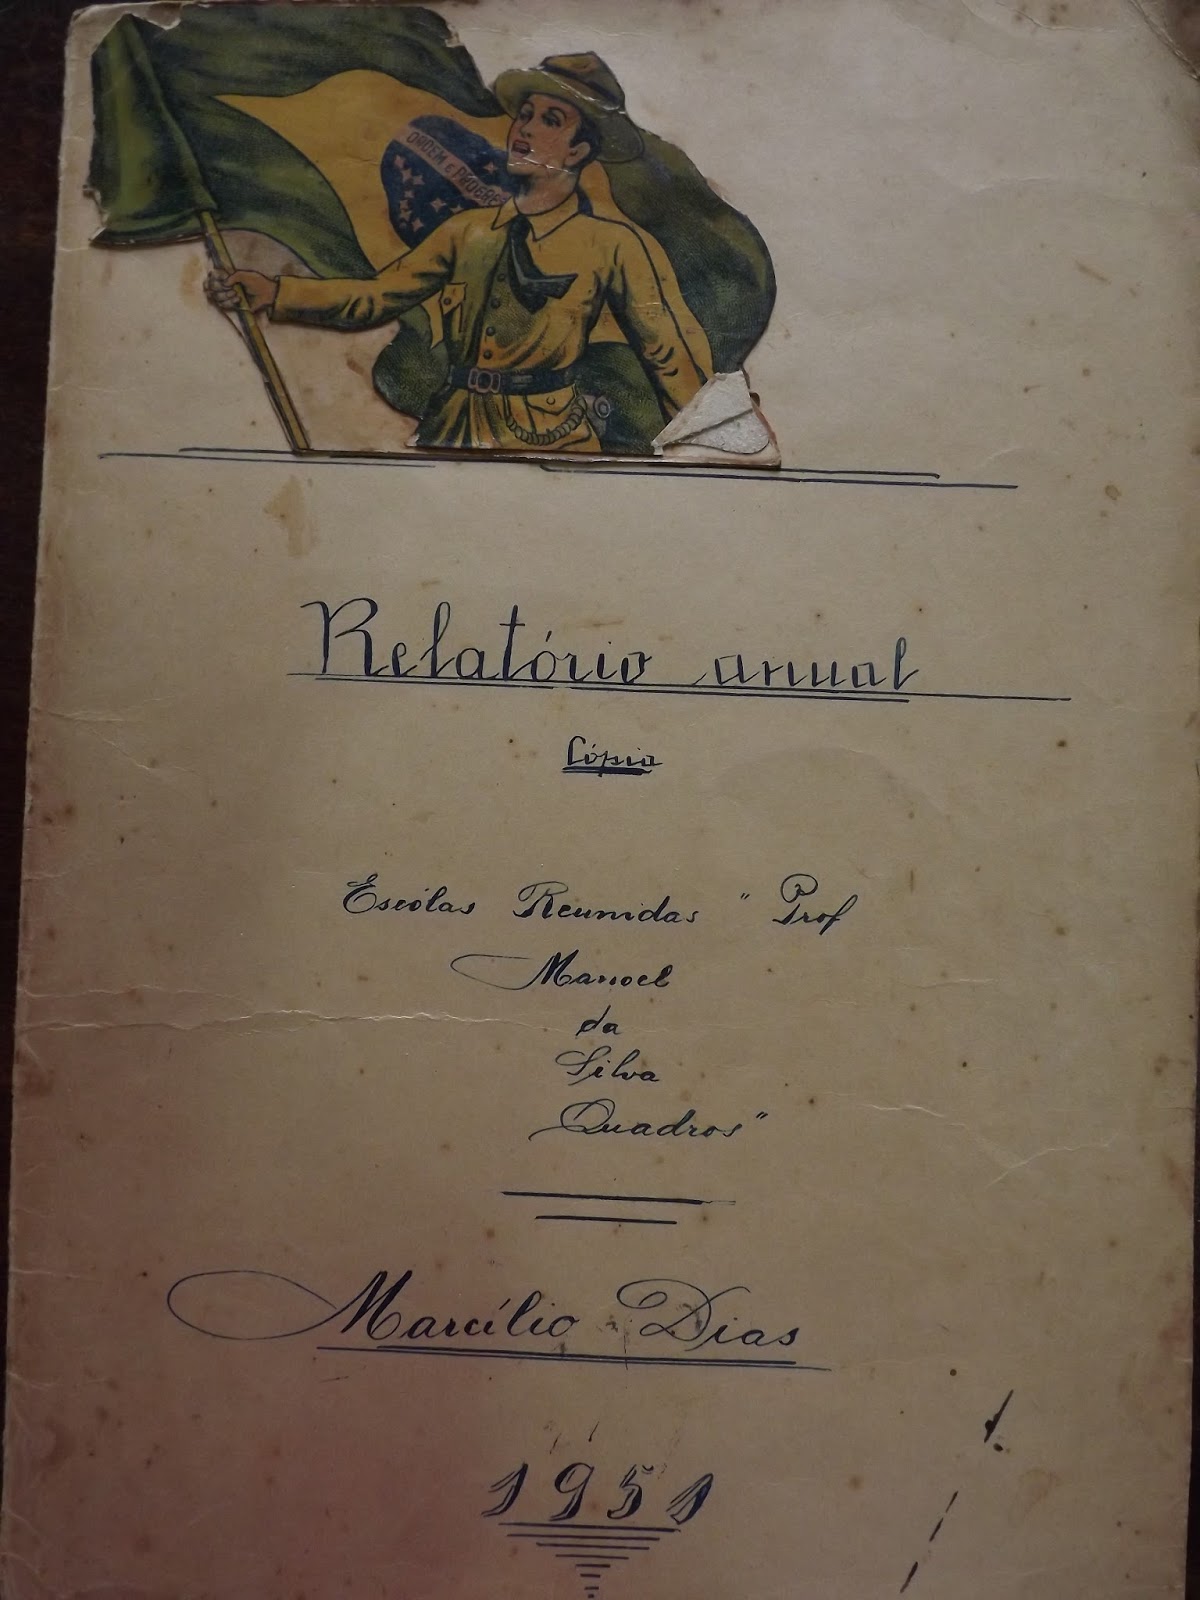 ORDEM E PROGRES
Relatório anual
Cópia
Escólas Reunidas "Prof
Manoel
da
Silva
Quadros"
Marcílio Dias
1951